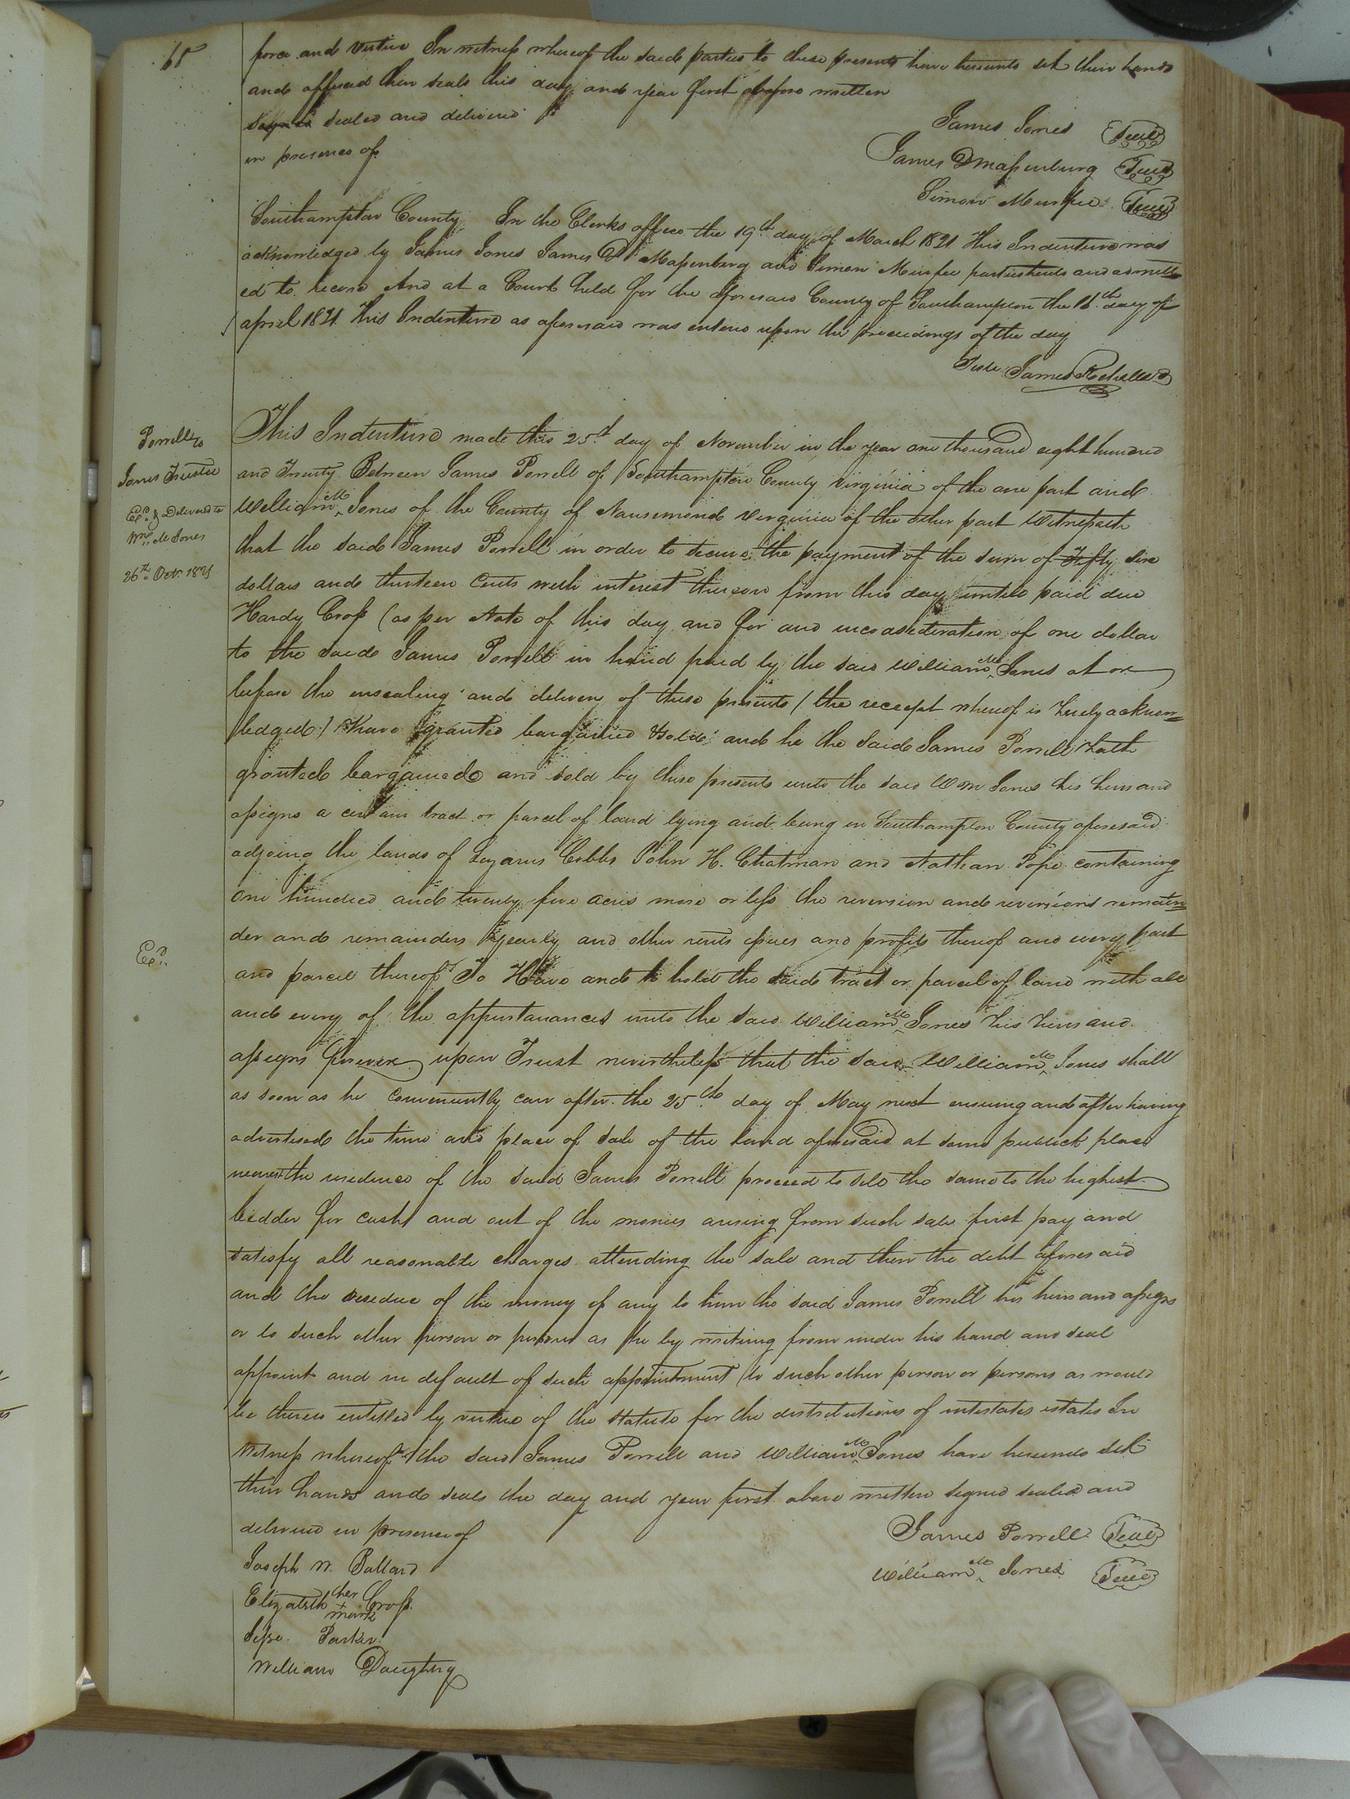 65
force and virtue In witness whereof the said parties to these presents have hereunto set their hands
and affixed their seals this day and year first before written
Signed sealed and delivered
in presence of
James Jones Seal
James D Massenburg Seal
Simon Murfee Seal
Southampton County In the Clerks office the 19th day of March 1821 This Indenture was
acknowledged by James Jones James D Massenburg and Simon Murfee parties thereto and admitt
ed to record And at a Court held for the aforesaid County of Southampton the 16th day of
april 1821 This Indenture as aforesaid was entered upon the proceedings of the day
Teste James Rochelle
Porrell to
Jones Trustee
Exd. & Delivered to
Wm. M Jones
26th Octr. 1821
This Indenture made this 25th day of November in the year one thousand eight hundred
and Twenty Between James Porrell of Southampton County Virginia of the one part and
William M Jones of the County of Nansemond Virginia of the other part Witnesseth
that the said James Porrell in order to secure the payment of the sum of Fifty five
dollars and thirteen Cents with interest thereon from this day until paid due
Hardy Cross (as per Note of this day and for and inconsideration of one dollar
to the said James Porrell in hand paid by the said William M Jones at or
before the ensealing and delivery of these presents (the receipt whereof is hereby acknow=
ledged) Have granted bargained & sold and he the said James Porrell hath
granted bargained and sold by these presents unto the said Wm Jones his heirs and
assigns a certain tract or parcel of land lying and being in Southampton County aforesaid
adjoing the lands of Lazarus Cobbs John H. Chatman and Nathan Pope containing
one hundred and twenty five acres more or less the reversion and reversions remain=
der and remainders yearly and other rents issues and profits thereof and every part
Exd.
and parcel thereof To Have and to hold the said tract or parcel of land with all
and every of the appurtanances unto the said William M Jones his heirs and
assigns forever upon Trust nevertheless that the said William M Jones shall
as soon as he conveniently can after the 25th day of May next ensuing and after having
advertised the time and place of sale of the land aforesaid at some publick place
near the residence of the said James Porrell proceed to sell the same to the highest
bidder for cash and out of the monies arising from such sale first pay and
satisfy all reasonable charges attending the sale and then the debt aforesaid
and the residue of the money if any to him the said James Porrell his heirs and assigns
or to such other person or persons as he by writing from under his hand and seal
appoint and in default of such appointment to such other person or persons as would
be thereto entitled by virtue of the statute for the distributions of intestates estates In
witness whereof the said James Porrell and William M Jones have hereunto set
their hands and seals the day and year first above written signed sealed and
delivered in presence of
James Porrell Seal
William M Jones Seal
Joseph W. Ballard
Elizabeth her + mark Cross
Jesse Parker
William Daughtry